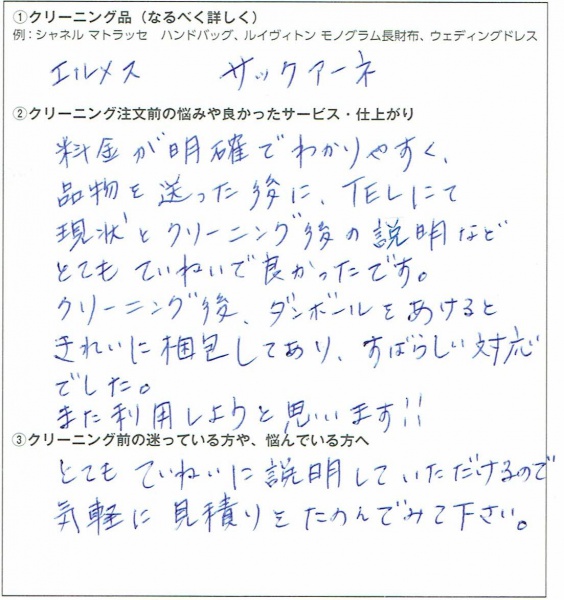 ①クリーニング品（なるべく詳しく）
例：シャネル マトラッセ　ハンドバッグ、ルイヴィトン モノグラム長財布、ウェディングドレス
エルメス　サックアーネ
②クリーニング注文前の悩みや良かったサービス・仕上がり
料金が明確でわかりやすく、
品物を送った後に、TELにて
現状とクリーニング後の説明など
とてもていねいで良かったです。
クリーニング後、ダンボールをあけると
きれいに梱包してあり、すばらしい対応
でした。
また利用しようと思います!!
③クリーニング前の迷っている方や、悩んでいる方へ
とてもていねいに説明していただけるので
気軽に見積りをたのんでみて下さい。